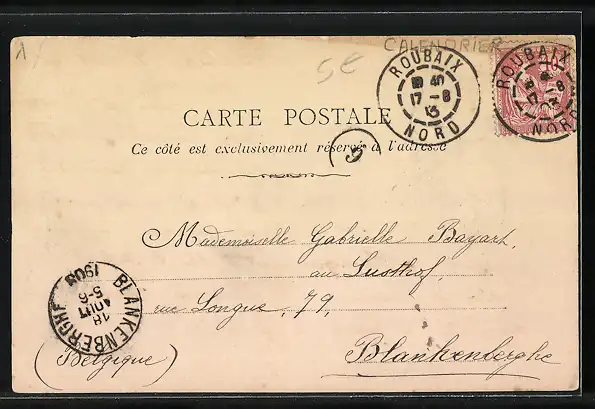 CALENDRIER
5c
ROUBAIX
17-8
03
NORD
ROUBAIX
17-8
03
NORD
CARTE POSTALE
Ce côté est exclusivement réservé à l'adresse
5
Mademoiselle Gabrielle Bayart,
au Lusthof,
rue Longue, 79,
Blankenberghe
(Belgique)
BLANKENBERGHE
1903
5-6
AOUT
18